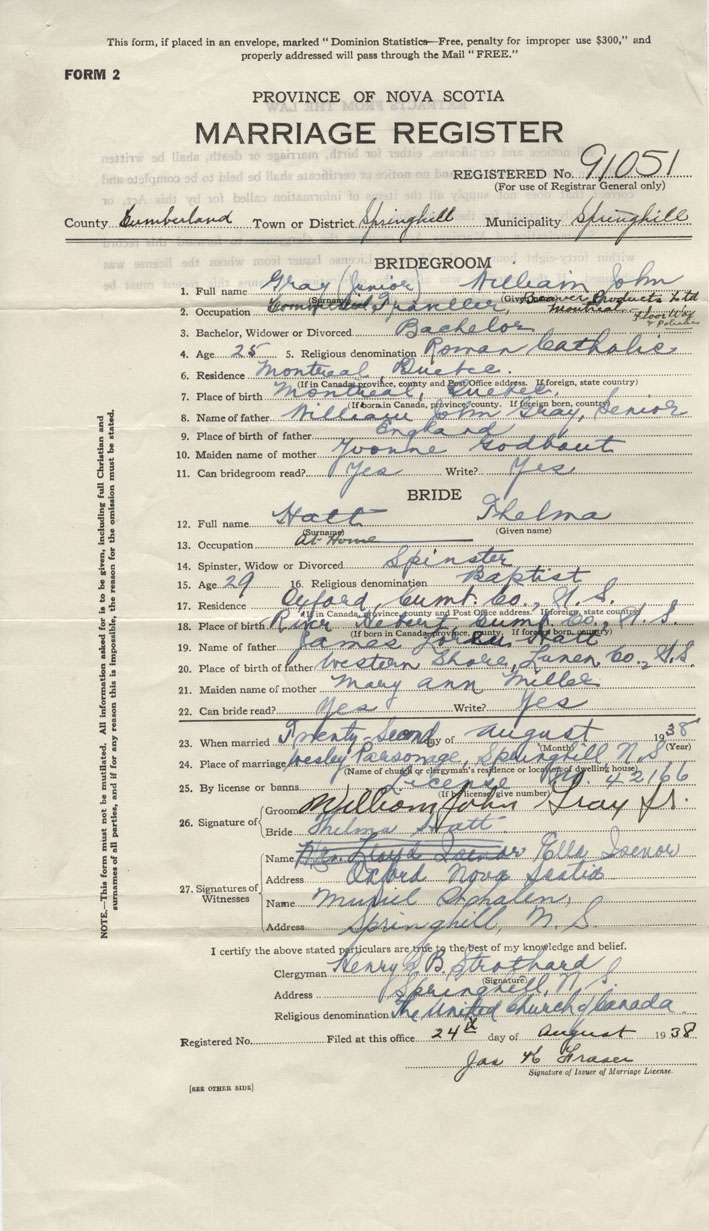 This form, if placed in an envelope, marked "Dominion Statistics—Free, penalty for improper use $300," and
properly addressed will pass through the Mail "FREE."
FORM 2
PROVINCE OF NOVA SCOTIA
MARRIAGE REGISTER
REGISTERED No. 91051
(For use of Registrar General only)
County Cumberland Town or District Springhill Municipality Springhill
BRIDEGROOM
1. Full name Gray (Junior) William John
(Surname) (Given name)
2. Occupation Commercial Traveller, Products Ltd Montreal Floor Wax & Polishes
3. Bachelor, Widower or Divorced Bachelor
4. Age 25 5. Religious denomination Roman Catholic
6. Residence Montreal, Quebec.
(If in Canada, province, county and Post Office address. If foreign, state country)
7. Place of birth Montreal, Quebec
(If born in Canada, province, county. If foreign born, country)
8. Name of father William John Gray, Senior
9. Place of birth of father England
10. Maiden name of mother Yvonne Godbout
11. Can bridegroom read? Yes Write? Yes
BRIDE
12. Full name Hatt Thelma
(Surname) (Given name)
13. Occupation At Home
14. Spinster, Widow or Divorced Spinster
15. Age 29 16. Religious denomination Baptist
17. Residence Oxford, Cumb. Co., N.S.
(If in Canada, province, county and Post Office address. If foreign, state country)
18. Place of birth River Hebert, Cumb. Co., N.S.
(If born in Canada, province, county. If foreign born, country)
19. Name of father James Hatt
20. Place of birth of father Western Shore, Lunen. Co., N.S.
21. Maiden name of mother Mary Ann Miller
22. Can bride read? Yes Write? Yes
23. When married Twenty-Second day of August 1938
(Month) (Year)
24. Place of marriage Wesley Parsonage, Springhill N S
(Name of church or clergyman's residence or location of dwelling house)
25. By license or banns License No. 42166
(If by license, give number)
26. Signature of Groom William John Gray Jr.
Bride Thelma Hatt
27. Signatures of Witnesses Name Mrs. Lloyd Isenor Ella Isenor
Address Oxford Nova Scotia
Name Muriel
Address Springhill, N. S.
I certify the above stated particulars are true to the best of my knowledge and belief.
Clergyman Henry B. Strothard
(Signature)
Address Springhill, N S.
Religious denomination The United Church of Canada
Registered No. Filed at this office 24th day of August 1938
Jas Fraser
Signature of Issuer of Marriage License.
[SEE OTHER SIDE]
NOTE.—This form must not be mutilated. All information asked for is to be given, including full Christian and
surnames of all parties, and if for any reason this is impossible, the reason for the omission must be stated.